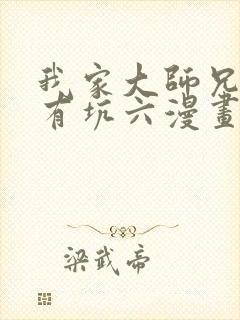 我家大師兄
有坑六漫畫
梁武帝